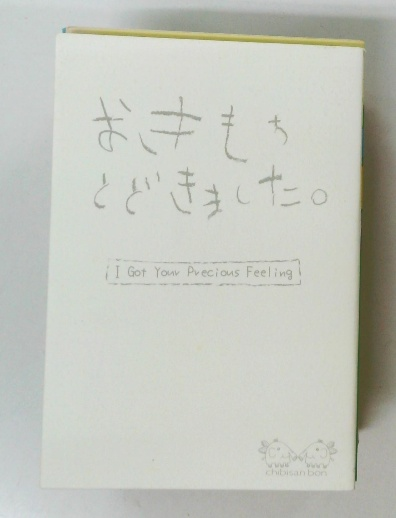 おきもち
とどきました。
I Got Your Precious Feeling
chibisan bon